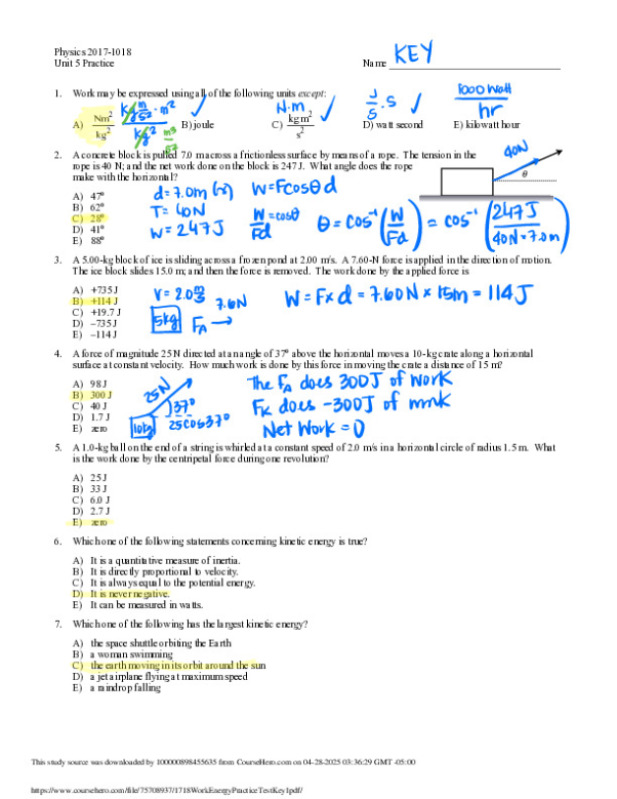 Physics 2017-1018
Unit 5 Practice
Name KEY
1. Work may be expressed using all of the following units except:
A) Nm²/kg² kg m/s² · m² / kg² m³/s²
B) joule ✓
C) kg m²/s² N·m ✓
D) watt second J/S · S ✓
E) kilowatt hour 1000 Watt / hr
2. A concrete block is pulled 7.0 m across a frictionless surface by means of a rope. The tension in the
rope is 40 N; and the net work done on the block is 247 J. What angle does the rope
make with the horizontal?
40N
θ
A) 47°
B) 62°
C) 28°
D) 41°
E) 88°
d = 7.0m (x)
T = 40N
W = 247J
W = Fcosθ d
W/Fd = cosθ
θ = cos⁻¹ (W/Fd) = cos⁻¹ (247J / 40N · 7.0m)
3. A 5.00-kg block of ice is sliding across a frozen pond at 2.00 m/s. A 7.60-N force is applied in the direction of motion.
The ice block slides 15.0 m; and then the force is removed. The work done by the applied force is
A) +735 J
B) +114 J
C) +19.7 J
D) –735 J
E) –114 J
V = 2.0 m/s
5kg
7.6N
FA →
W = F x d = 7.60N x 15m = 114J
4. A force of magnitude 25 N directed at an angle of 37° above the horizontal moves a 10-kg crate along a horizontal
surface at constant velocity. How much work is done by this force in moving the crate a distance of 15 m?
A) 98 J
B) 300 J
C) 40 J
D) 1.7 J
E) zero
25N
37°
10kg
25cos37°
The FA does 300J of work
FK does -300J of work
Net Work = 0
5. A 1.0-kg ball on the end of a string is whirled at a constant speed of 2.0 m/s in a horizontal circle of radius 1.5 m. What
is the work done by the centripetal force during one revolution?
A) 25 J
B) 33 J
C) 6.0 J
D) 2.7 J
E) zero
6. Which one of the following statements concerning kinetic energy is true?
A) It is a quantitative measure of inertia.
B) It is directly proportional to velocity.
C) It is always equal to the potential energy.
D) It is never negative.
E) It can be measured in watts.
7. Which one of the following has the largest kinetic energy?
A) the space shuttle orbiting the Earth
B) a woman swimming
C) the earth moving in its orbit around the sun
D) a jet airplane flying at maximum speed
E) a raindrop falling
This study source was downloaded by 100000898455635 from CourseHero.com on 04-28-2025 03:36:29 GMT -05:00
https://www.coursehero.com/file/75708937/1718WorkEnergyPracticeTestKey1pdf/